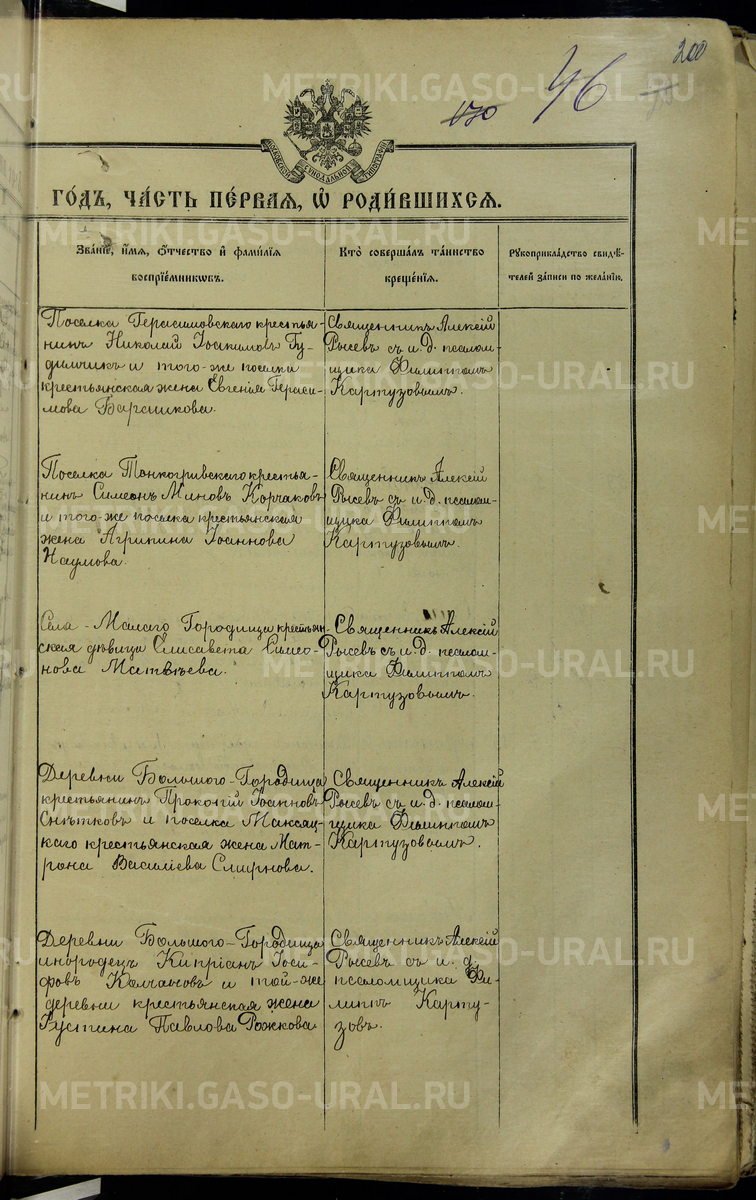 200
46
130
МОСКОВСКОЙ СУНОДАЛЬНОЙ ТИПОГРАФІИ
ГО́ДЪ, ЧА́СТЬ ПЕ́РВАЯ, Ѡ҆ РОДИ́ВШИХСЯ.
Зва́нїе, и҆́мѧ, ѻ҆́тчество и҆ фами́лїѧ
воспрїе́мникѡвъ.
Кто̀ соверша́лъ та́инство
креще́нїѧ.
Рꙋкоприкла́дство свидѣ́-
телей за́писи по жела́нїю.
Поселка Герасимовскаго крестья-
нинъ Николай Іоакимовъ Гу-
димчикъ и того-же поселка
крестьянская жена Евгенія Гераси-
мова Барашкова.
Священникъ Алексій
Рысевъ съ и. д. псалом-
щика Филиппомъ
Картузовымъ.
Поселка Тонкогривскаго крестья-
нинъ Симеонъ Миновъ Корчаковъ
и того-же поселка крестьянская
жена Агрипина Іоаннова
Наумова.
Священникъ Алексій
Рысевъ съ и. д. псалом-
щика Филиппомъ
Картузовымъ.
Села-Малаго Городища крестьян-
ская дѣвица Елисавета Симео-
нова Матвѣева.
Священникъ Алексій
Рысевъ съ и. д. псалом-
щика Филиппомъ
Картузовымъ.
Деревни Большого-Городища
крестьянинъ Прокопій Іоанновъ
Снѣтковъ и поселка Максац-
каго крестьянская жена Мат-
рона Василіева Смирнова.
Священникъ Алексій
Рысевъ съ и. д. псалом-
щика Филиппомъ
Картузовымъ.
Деревни Большого-Городища
инородецъ Кипріанъ Іоси-
фовъ Колчановъ и той-же
деревни крестьянская жена
Іустина Павлова Рожкова.
Священникъ Алексій
Рысевъ съ и. д.
псаломщика Фи-
липпъ Карту-
зовъ.
METRIKI.GASO-URAL.RU
METRIKI.GASO-URAL.RU
METRIKI.GASO-URAL.RU
METRIKI.GASO-URAL.RU
METRIKI.GASO-URAL.RU
METRIKI.GASO-URAL.RU
METRIKI.GASO-URAL.RU
METRIKI.GASO-URAL.RU